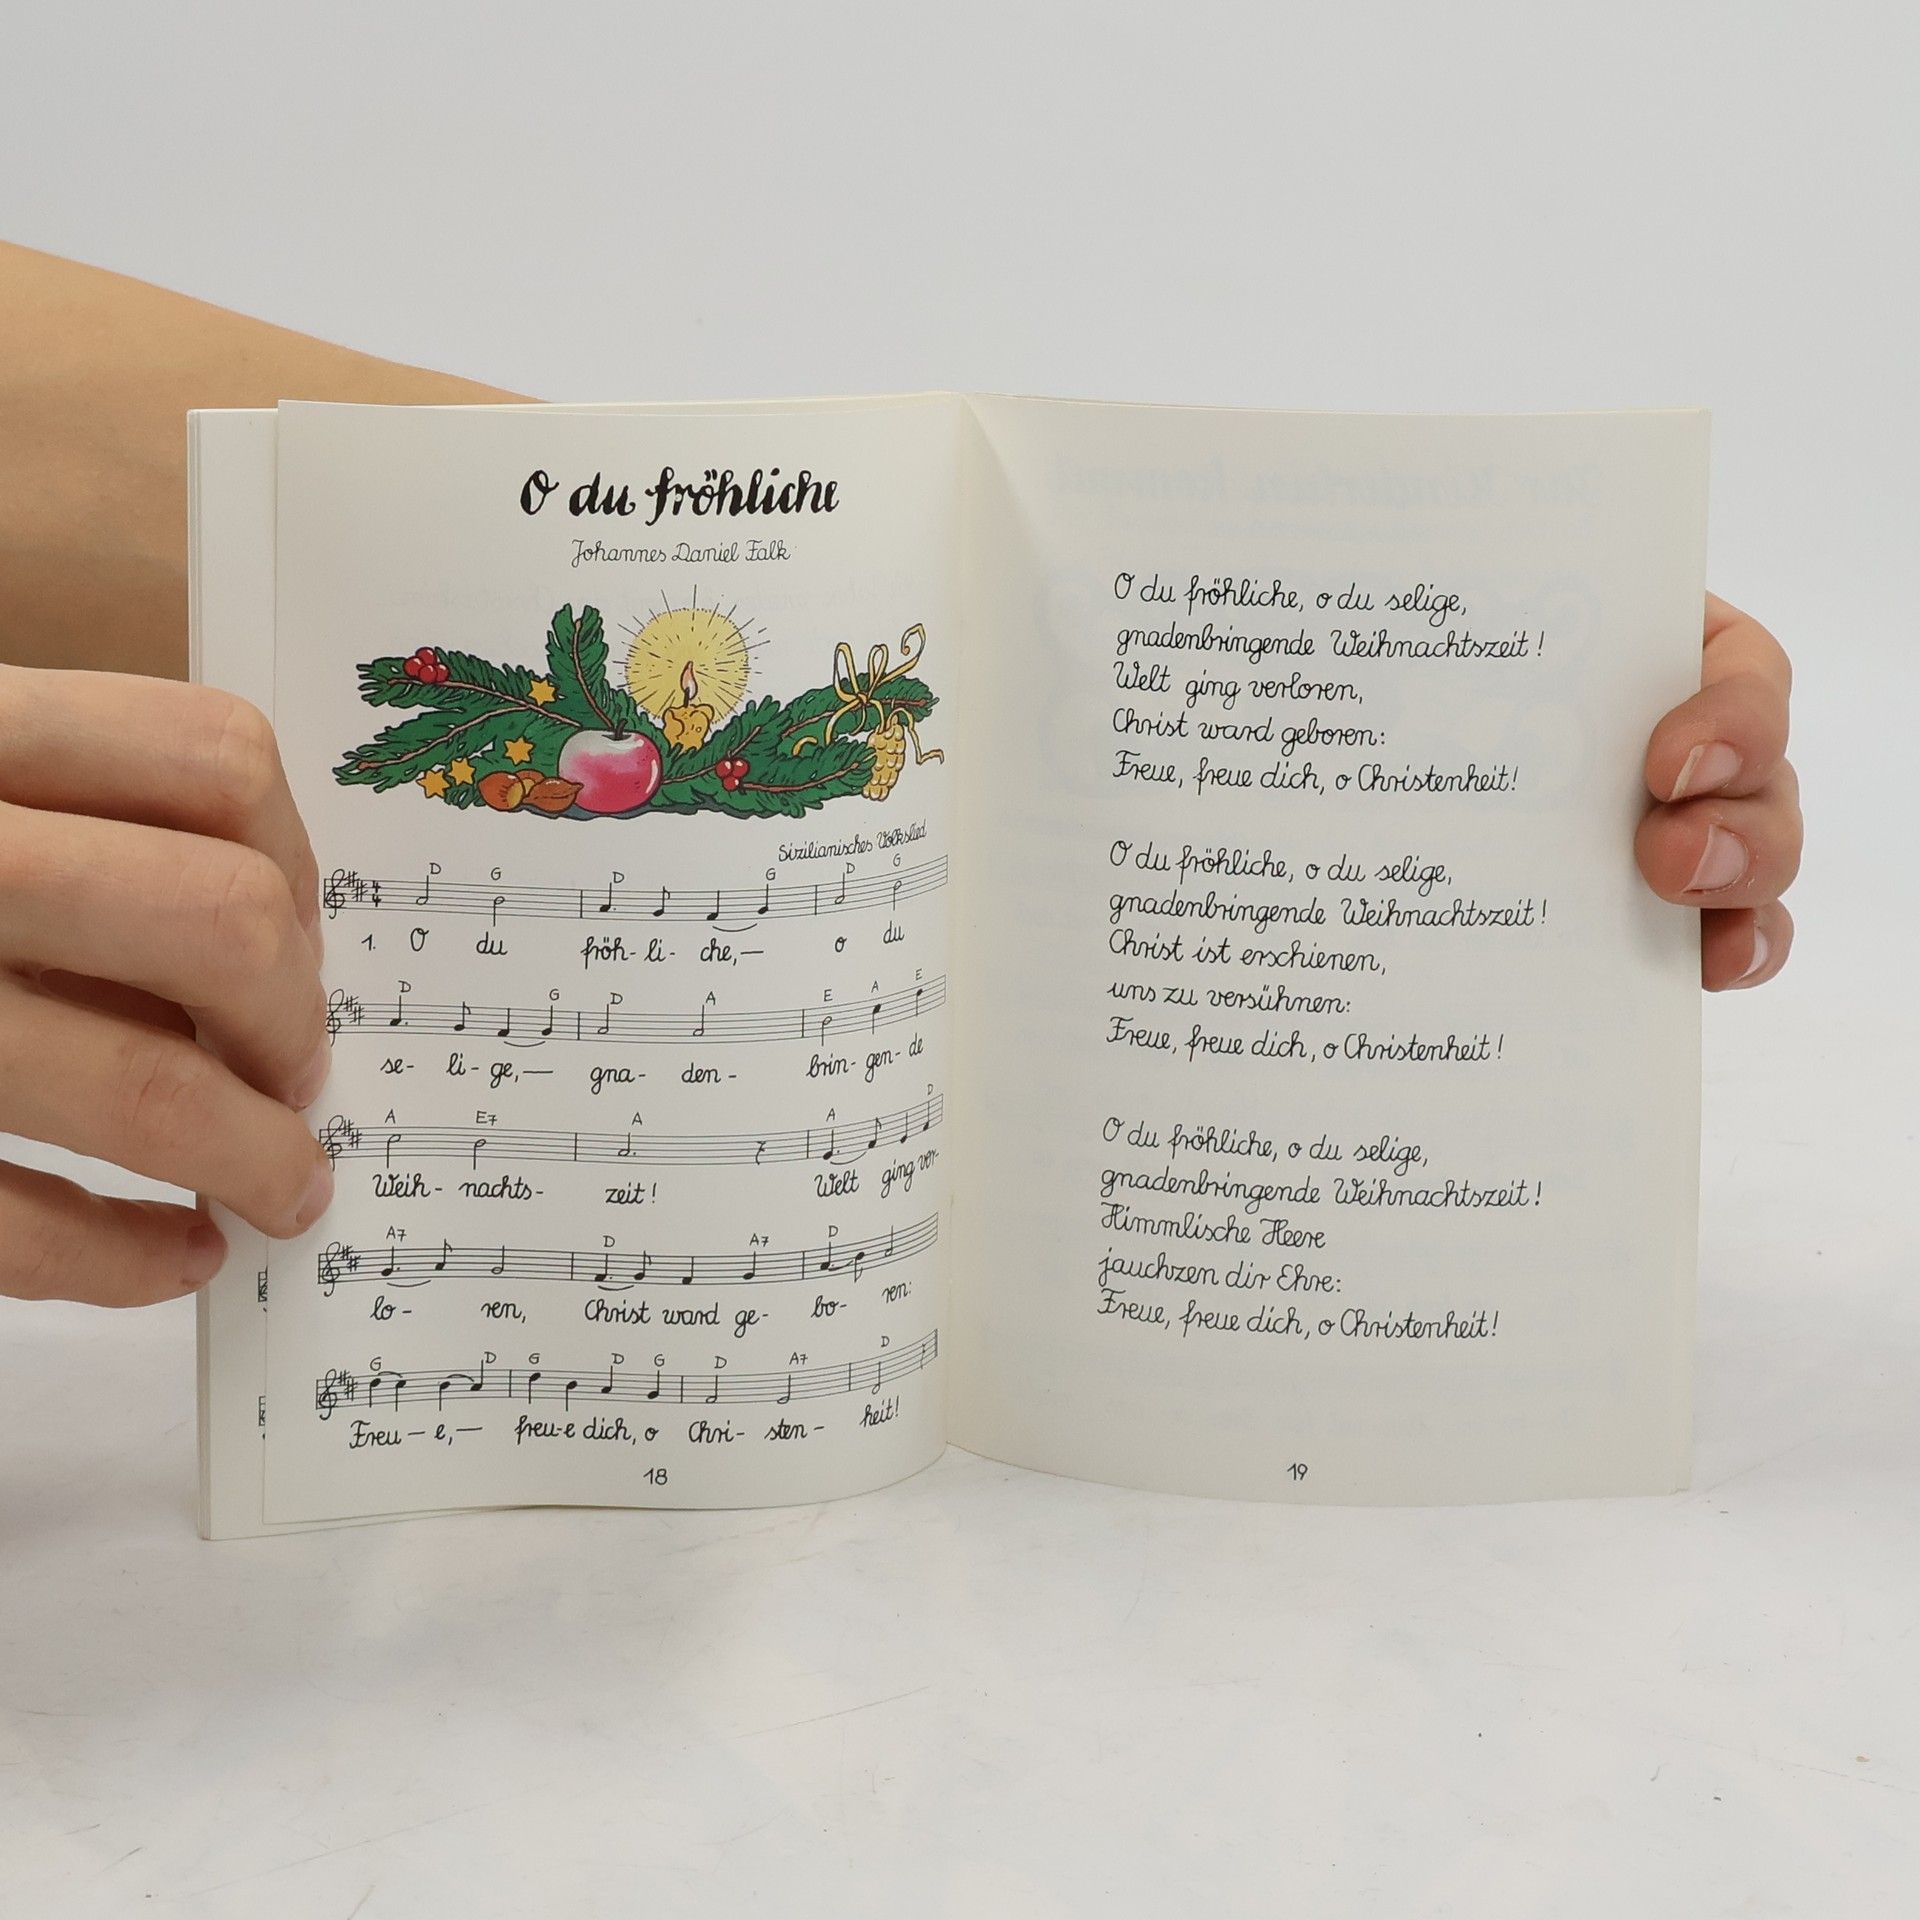 O du fröhliche
Johannes Daniel Falk
Sizilianisches Volkslied
D G D G D G
1. O du fröh- li- che,— o du
D G D A E A E
se- li- ge,— gna- den- brin- gen- de
A E7 A A D
Weih- nachts- zeit! Welt ging ver-
A7 D A7 D
lo- ren, Christ ward ge- bo- ren:
G D G D G D A7 D
Freu- e,— freu-e dich, o Chri- sten- heit!
18
O du fröhliche, o du selige,
gnadenbringende Weihnachtszeit!
Welt ging verloren,
Christ ward geboren:
Freue, freue dich, o Christenheit!
O du fröhliche, o du selige,
gnadenbringende Weihnachtszeit!
Christ ist erschienen,
uns zu versühnen:
Freue, freue dich, o Christenheit!
O du fröhliche, o du selige,
gnadenbringende Weihnachtszeit!
Himmlische Heere
jauchzen dir Ehre:
Freue, freue dich, o Christenheit!
19